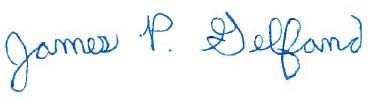 James P. Gelfand